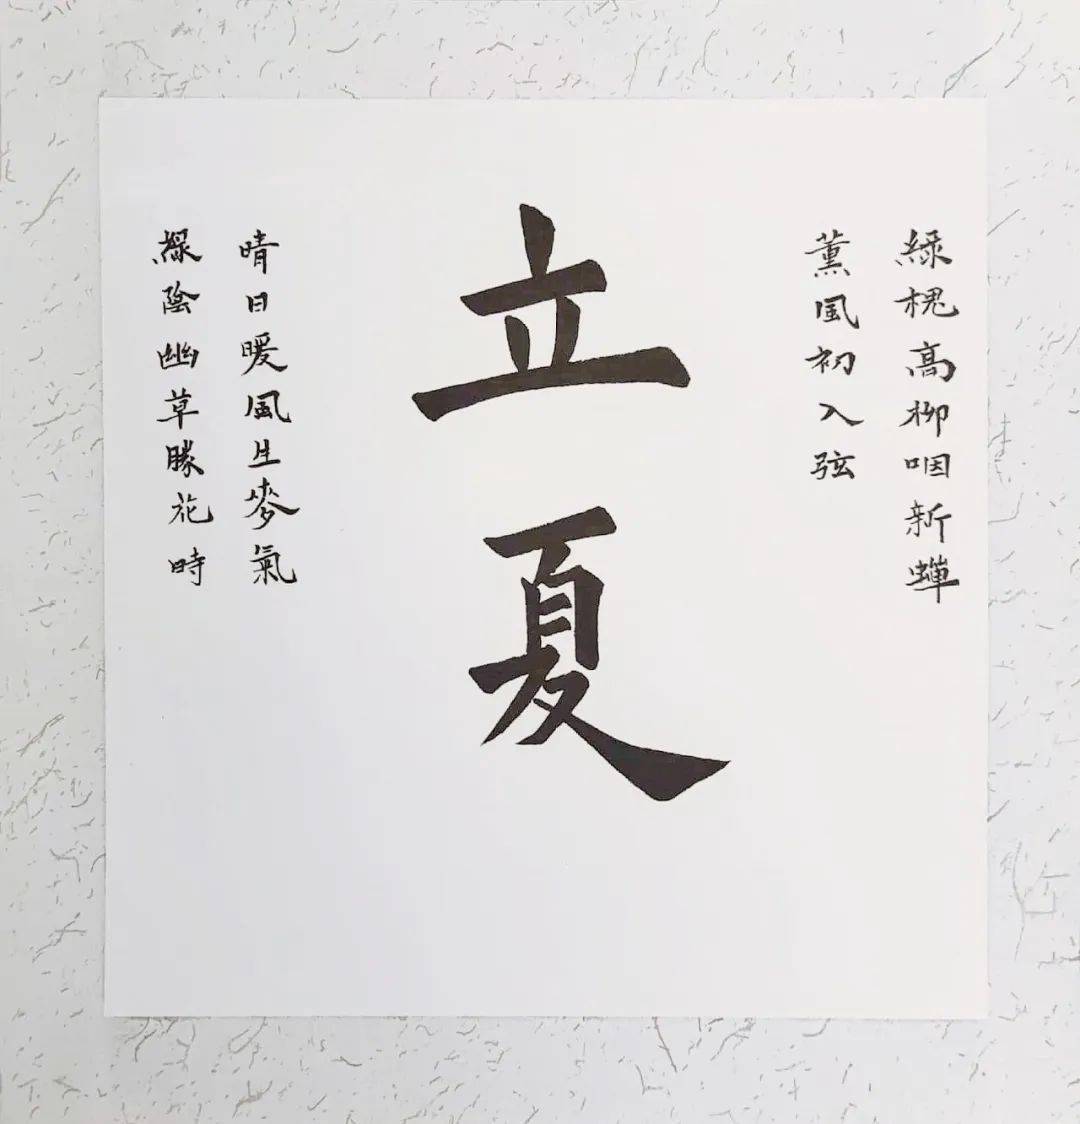 綠槐高柳咽新蟬
薰風初入弦
立夏
晴日暖風生麥氣
綠陰幽草勝花時